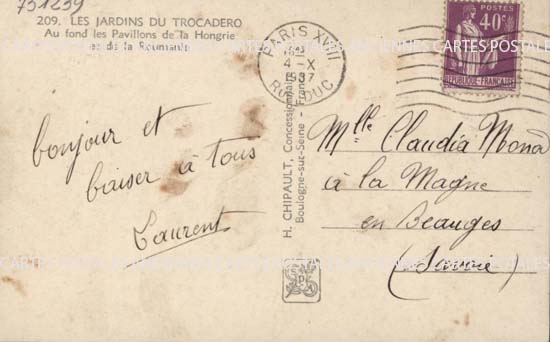 751239
209. LES JARDINS DU TROCADERO
Au fond les Pavillons de la Hongrie
et de la Roumanie
bonjour et
baiser à tous
Laurent
H. CHIPAULT, Concessionnaire
Boulogne-sur-Seine - France
PARIS XVIII
4-X
1937
R. DUC
40c
REPUBLIQUE FRANCAISE
Mlle Claudia Mona
à la Magne
en Beauges
(Savoie)
CARTES POSTALES ANCIENNES CARTES POSTALES